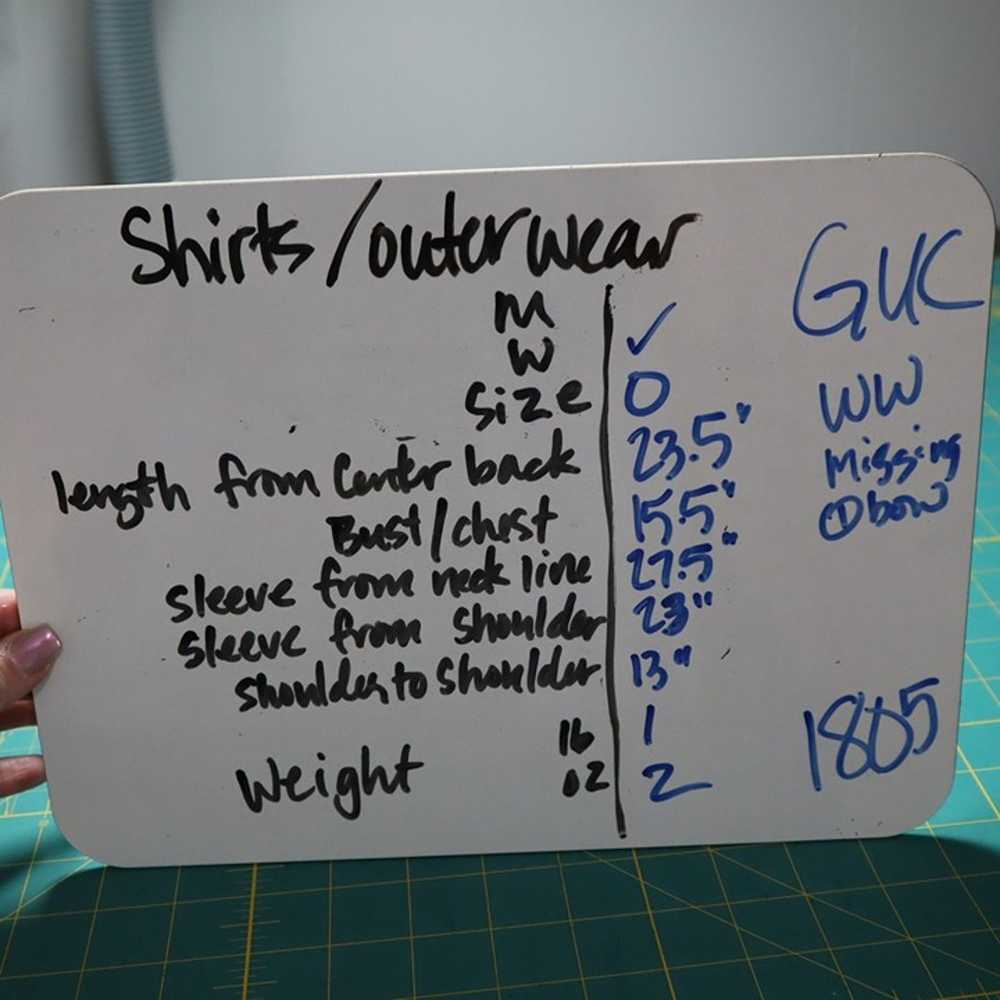 Shirts/outerwear
GUC
M
W ✓
Size 0
WW
length from Center back 23.5"
Missing
① bow
Bust/chest 15.5"
sleeve from neck line 27.5"
sleeve from shoulder 23"
shoulder to shoulder 13"
lb 1
Weight oz 2
1805